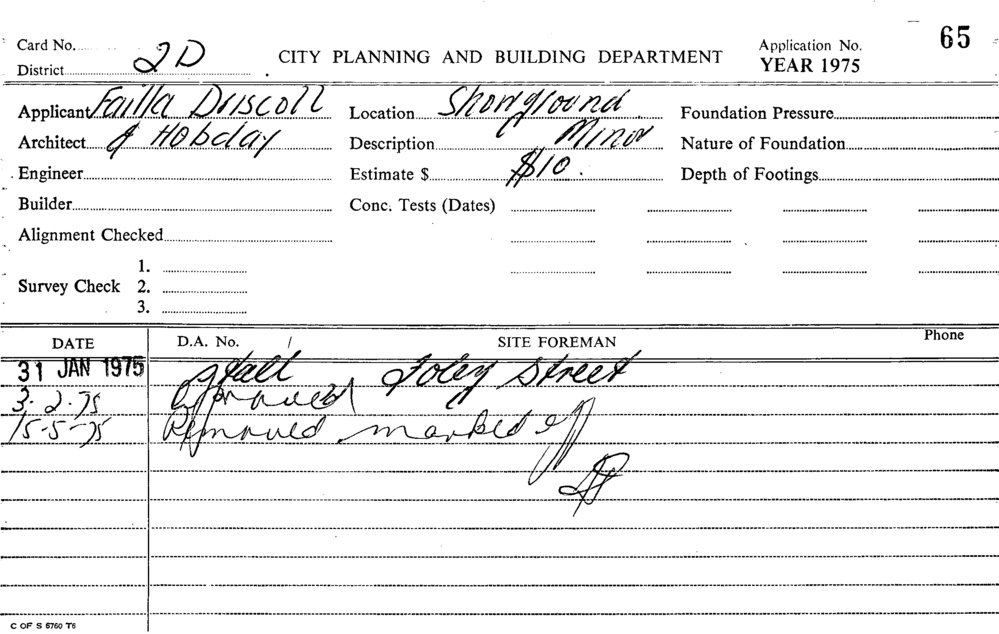 Card No. 2D CITY PLANNING AND BUILDING DEPARTMENT Application No. 65
District YEAR 1975
Applicant Failla Driscoll Location Showground Foundation Pressure
Architect & Hobday Description Minor Nature of Foundation
Engineer Estimate $ $10. Depth of Footings
Builder Conc. Tests (Dates)
Alignment Checked
1.
Survey Check 2.
3.
DATE D.A. No. / SITE FOREMAN Phone
31 JAN 1975 Stall Foley Street
3.2.75 Approved
15-5-75 Removed marked off
C OF S 6760 T6